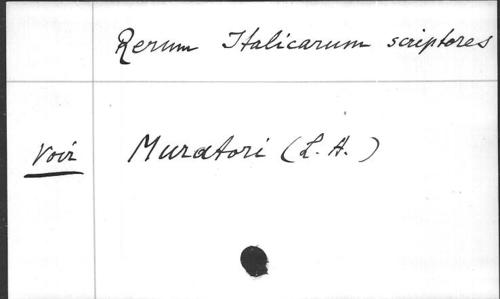 Rerum Italicarum scriptores
Voir Muratori (L. A.)